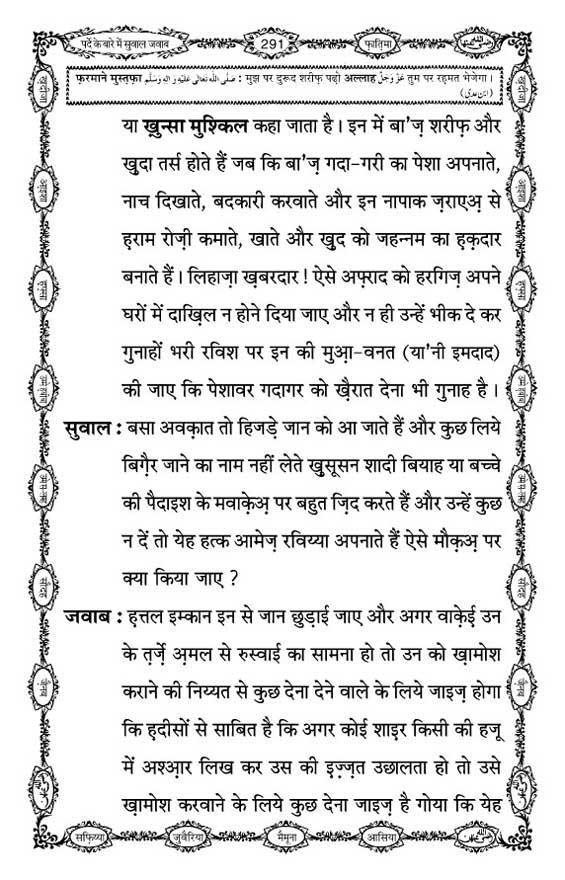 पर्दे के बारे में सुवाल जवाब
291
फ़ातिमा
फ़रमाने मुस्तफ़ा صَلَّى اللهُ تَعَالٰى عَلَيْهِ وَاٰلِهٖ وَسَلَّم : मुझ पर दुरूद शरीफ़ पढ़ो अल्लाह عَزَّوَجَلَّ तुम पर रहमत भेजेगा।
(ابن عدی)
या ख़ुन्सा मुश्किल कहा जाता है। इन में बा'ज़ शरीफ़ और
ख़ुदा तर्स होते हैं जब कि बा'ज़ गदा-गरी का पेशा अपनाते,
नाच दिखाते, बदकारी करवाते और इन नापाक ज़राएअ़ से
ह़राम रोज़ी कमाते, खाते और ख़ुद को जहन्नम का ह़क़दार
बनाते हैं। लिहाज़ा ख़बरदार ! ऐसे अफ़्राद को हरगिज़ अपने
घरों में दाख़िल न होने दिया जाए और न ही उन्हें भीक दे कर
गुनाहों भरी रविश पर इन की मुआ़-वनत (या'नी इमदाद)
की जाए कि पेशावर गदागर को ख़ैरात देना भी गुनाह है।
सुवाल : बसा अवक़ात तो हिजड़े जान को आ जाते हैं और कुछ लिये
बिग़ैर जाने का नाम नहीं लेते ख़ुसूसन शादी बियाह या बच्चे
की पैदाइश के मवाक़ेअ़ पर बहुत ज़िद करते हैं और उन्हें कुछ
न दें तो येह हत्क आमेज़ रविय्या अपनाते हैं ऐसे मौक़अ़ पर
क्या किया जाए ?
जवाब : ह़त्तल इम्कान इन से जान छुड़ाई जाए और अगर वाक़ेई उन
के तर्ज़े अ़मल से रुस्वाई का सामना हो तो उन को ख़ामोश
कराने की निय्यत से कुछ देना देने वाले के लिये जाइज़ होगा
कि ह़दीसों से साबित है कि अगर कोई शाइर किसी की हजू
में अश्आ़र लिख कर उस की इज़्ज़त उछालता हो तो उसे
ख़ामोश करवाने के लिये कुछ देना जाइज़ है गोया कि येह
सफ़िय्या
जुवैरिया
मैमूना
आसिया